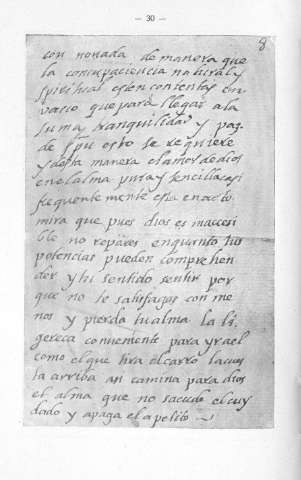 — 30 —
8
con nonada de manera que
la concupaciencia natural y
spiritual esten contentas en
vacio que para llegar a la
suma tranquilidad y paz
de spu esto se requiere
y desta manera el amor de dios
en el alma pura y sencilla casi
frequentemente esta en acto
mira que pues dios es inaccesi
ble no repares en quanto tus
potencias pueden comprehen
der y tu sentido sentir por
que no te satisfagas con me
nos y pierda tu alma la li
gereça conueniente para yr a el
como el que tira el carro la cues
ta arriba asi camina para dios
el alma que no sacude el cuy
dado y apaga el apetito